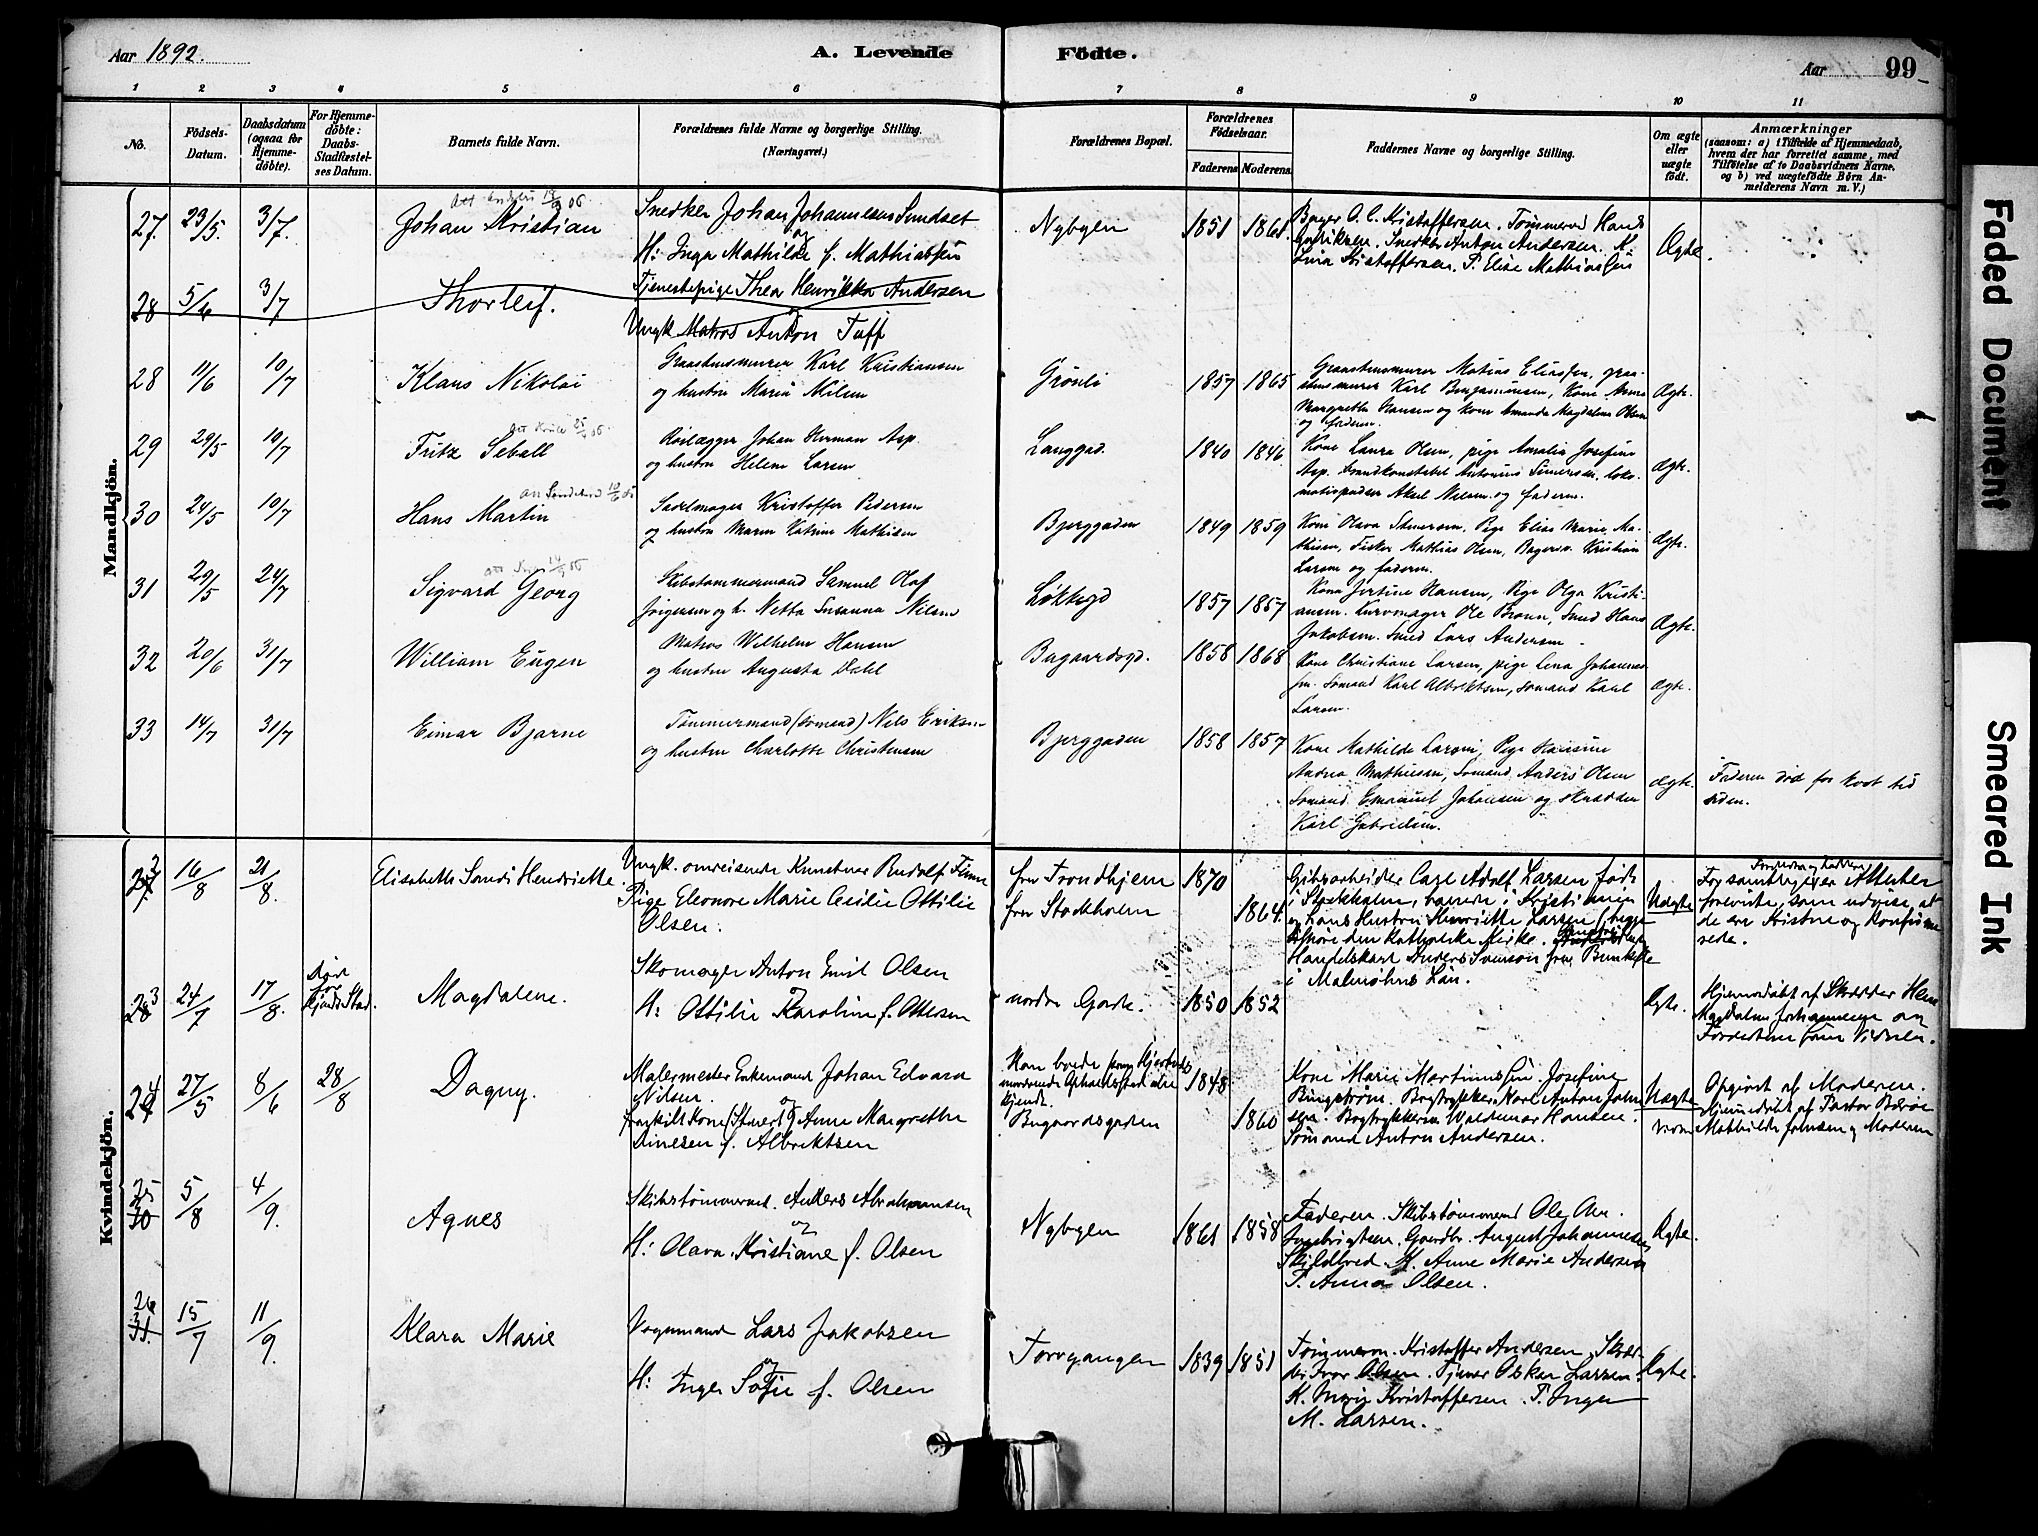 Aar 1892.
A. Levende Fødte.
Aar 99
1 2 3 4 5 6 7 8 9 10 11
No.
Fødsels-Datum.
Daabsdatum (ogsaa for Hjemmedøbte).
For Hjemmedøbte: Daabs-Stadfæstelses Datum.
Barnets fulde Navn.
Forældrenes fulde Navne og borgerlige Stilling. (Næringsvei.)
Forældrenes Bopæl.
Forældrenes Fødselsaar.
Faderens Moderens
Faddernes Navne og borgerlige Stilling.
Om ægte eller uægte født.
Anmærkninger
(saasom: a) i Tilfælde af Hjemmedaab, hvem der har forrettet samme, med Tilføielse af to Daabsvidners Navne, og b) ved uægtefødte Børn Anmelderens Navn m. V.)
Mandkjøn.
27. 23/5. 3/7. Johan Kristian
Snedker Johan Johannesen Sundset
og
H: Inga Mathilde f. Mathiassen
Nybyen 1851 1861
Bager O. C. Kristoffersen. Tømmermd Hans
Snedker Anton Andersen. K.
Kristoffersen. P. Elise Mathiassen
Ægte.
28 5/6 3/7 Thorleif.
Tjenestepige Thea Henrikka Andersen
Ungk Matros Anton Tuff
28 11/6 10/7 Klaus Nikolai
Graastensmurer Karl Kristiansen
og hustru Maria Nilsen
Grønli 1857 1865
Graastensmurer Matias Eliassen, graa-
stensmurer Karl Benjaminsen, Kone Anna
Margrethe Hansen og kone Amanda Magdalena Olsen
og faderen.
Ægte.
29 29/5 10/7 Fritz Seball
Johan Herman Asp
og hustru Helene Larsen
Langgad. 1840 1846
Kone Laura Olsen, pige Amalia Josefine
Asp. brandkonstabel Antonius Simensen, loko-
motivpudser Aksel Nilsen og faderen.
Ægte.
30 24/5 10/7 Hans Martin
Sadelmager Kristoffer Pedersen
og hustru Maren Katrine Mathisen
Bjerggaden 1849 1859
Kone Olava Simensen, Pige Elise Marie Ma-
thisen, Fisker Mathias Olsen, Bagersv. Kristian
Larsen og faderen.
Ægte.
31 29/5 24/7 Sigvard Georg
Skibstømmermand Samuel Olaf
Jørgensen og h. Netta Susanna Nilsen
Løkkegd 1857 1857
Kone Jertine Hansen, Pige Olga Kristi-
ansen. Kurvmager Ole Braun, Smed Hans
Jakobsen. Smed Lars Andersen
Ægte.
32 20/6 31/7 William Eugen
Matros Wilhelm Hansen
og hustru Augusta Dahl
Bugaardsgd. 1858 1868
Kone Christiane Larsen, pige Lena Johannes-
sen. Sømand Karl Albrektsen, sømand Karl
Larsen.
Ægte.
33 14/7 31/7 Eimar Bjarne
Tømmermand (sømand) Nils Eriksen
og hustru Charlotte Christensen
Bjerggaden 1858 1857
Kone Mathilde Larsen, Pige Hansine
Andrea Mathisen, Sømand Anders Olsen
Sømand Emanuel Johansen og skrædder
Karl Gabrielsen.
Ægte.
Faderen død for kort tid
siden.
Kvindekjøn.
16/8 21/8. Elisabeth Sandi Henriette.
Ungk. omreisende Kunstner Rudolf Finne
Pige Eleonore Marie Cecilie Ottilie
Olsen.
fra Trondhjem
fra Stockholm
1870 1864.
Gibsarbeider Carl Adolf Larsen født
i Stockholm, boende i Kristiania
og hans Hustru Henriette Larsen, begge
den katholske Kirke.
Handelskarl Anders Svenson fra Bunkeflo
i Malmøhus Län.
Uægte
Attester
foreviste, som udvise at
de ere Kristne og konfirme-
rede.
23 24/7 17/8. død Magdalene.
Skomager Anton Emil Olsen
og
H: Ottilie Karoline f. Ottersen
nordre Gade. 1850 1852
Ægte.
Hjemmedøbt af Skrædder
Magdalene Johannesen og
24 27/5 8/6 28/8 Dagny.
Malermester Enkemand Johan Edvard
Nilsen.
og
fraskilt Kone Anne Margrethe
Dinesen f. Albrektsen
nuværende Opholdssted ikke
kjendt.
Bugaardsgaden
1848 1860
Kone Marie Martinussen. Josefine
Ringstrøm. Bogtrykker Karl Anton John-
sen. Bogtrykkersv. Waldemar Hansen.
Sømand Anton Andersen.
Uægte
Opgivet af Moderen.
Hjemmedøbt af Pastor
Mathilde Johnsen og Moderen
25 5/8 4/9. Agnes
Skibstømmermd. Anders Abrahamsen
og
H: Olava Kristiane f. Olsen
Nybyen 1861 1858
Faderen. Skibstømmermd Ole Chr.
Ingebrigtsen. Gaardbr. August Johannesen
Skjildbred. K. Anne Marie Andersen
P. Anna Olsen.
Ægte.
26 15/7 11/9. Klara Marie
Vognmand Lars Jakobsen
og
H: Inger Sofie f. Olsen
Torvgangen 1839 1851
Tømmerm. Kristoffer Andersen. Skræd-
der Ivar Olsen. Tjener Oskar Larsen.
K. Marie Kristoffersen. P. Inga
M. Larsen.
Ægte.
Faded Document
Smeared Ink